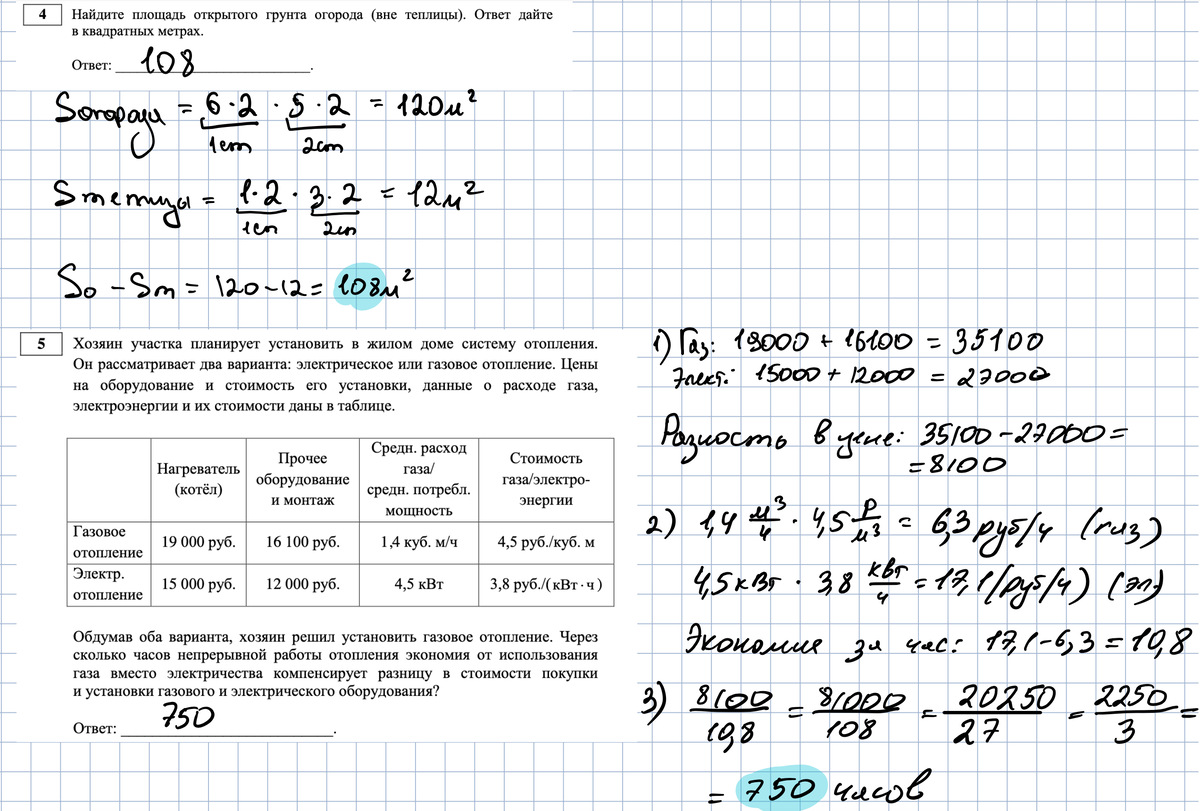 4
Найдите площадь открытого грунта огорода (вне теплицы). Ответ дайте
в квадратных метрах.
Ответ: 108.
Sогорода = 6·2 · 5·2 = 120м²
1cm 2cm
Sтеплицы = 1·2 · 3·2 = 12м²
1cm 2cm
So – Sт = 120–12 = 108м²
5
Хозяин участка планирует установить в жилом доме систему отопления.
Он рассматривает два варианта: электрическое или газовое отопление. Цены
на оборудование и стоимость его установки, данные о расходе газа,
электроэнергии и их стоимости даны в таблице.
Нагреватель
(котёл)
Прочее
оборудование
и монтаж
Средн. расход
газа/
средн. потребл.
мощность
Стоимость
газа/электро-
энергии
Газовое
отопление
19 000 руб.
16 100 руб.
1,4 куб. м/ч
4,5 руб./куб. м
Электр.
отопление
15 000 руб.
12 000 руб.
4,5 кВт
3,8 руб./(кВт·ч)
Обдумав оба варианта, хозяин решил установить газовое отопление. Через
сколько часов непрерывной работы отопления экономия от использования
газа вместо электричества компенсирует разницу в стоимости покупки
и установки газового и электрического оборудования?
Ответ: 750.
1) Газ: 19000 + 16100 = 35100
Элект.: 15000 + 12000 = 27000
Разность в цене: 35100 – 27000 =
= 8100
2) 1,4 м³/ч · 4,5 р/м³ = 6,3 руб/ч (газ)
4,5 кВт · 3,8 кВт/ч = 17,1 (руб/ч) (эл)
Экономия за час: 17,1 – 6,3 = 10,8
3) 8100/10,8 = 81000/108 = 20250/27 = 2250/3 =
= 750 часов